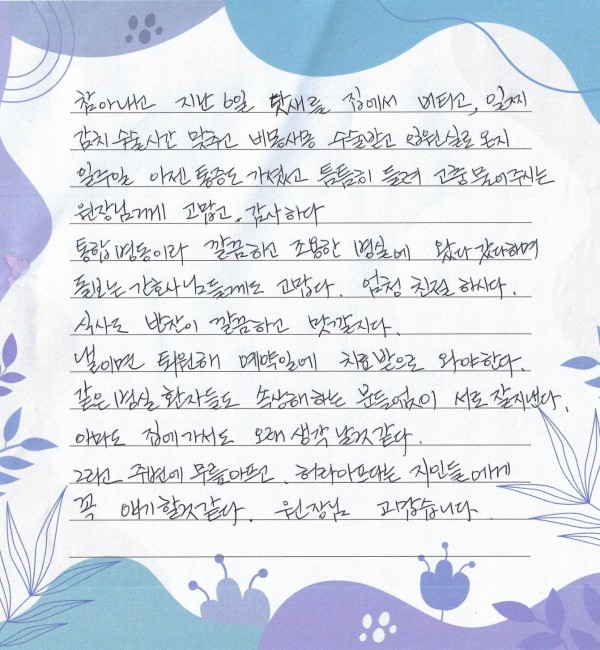 참아내고 지난 6일 닷새를 집에서 버티고, 일찌
감치 수술시간 맞추고 비몽사몽 수술받고 입원실로 온지
일주일 이젠 통증도 가셨고 틈틈히 들려 고충 물어주시는
원장님께 고맙고, 감사하다
통합병동이라 깔끔하고 조용한 병실에 왔다 갔다하며
돌보는 간호사님들께도 고맙다. 엄청 친절 하시다.
식사도 반찬이 깔끔하고 맛깔지다.
낼이면 퇴원해 예약일에 치료받으로 와야한다.
같은 병실 환자들도 속상해하는 분들없이 서로 잘지낸다.
아마도 집에가서도 오래 생각 날것 같다.
그리고 주변에 무릎아프고, 허리아프다는 지인들에게
꼭 얘기할것같다. 원장님 고맙습니다.